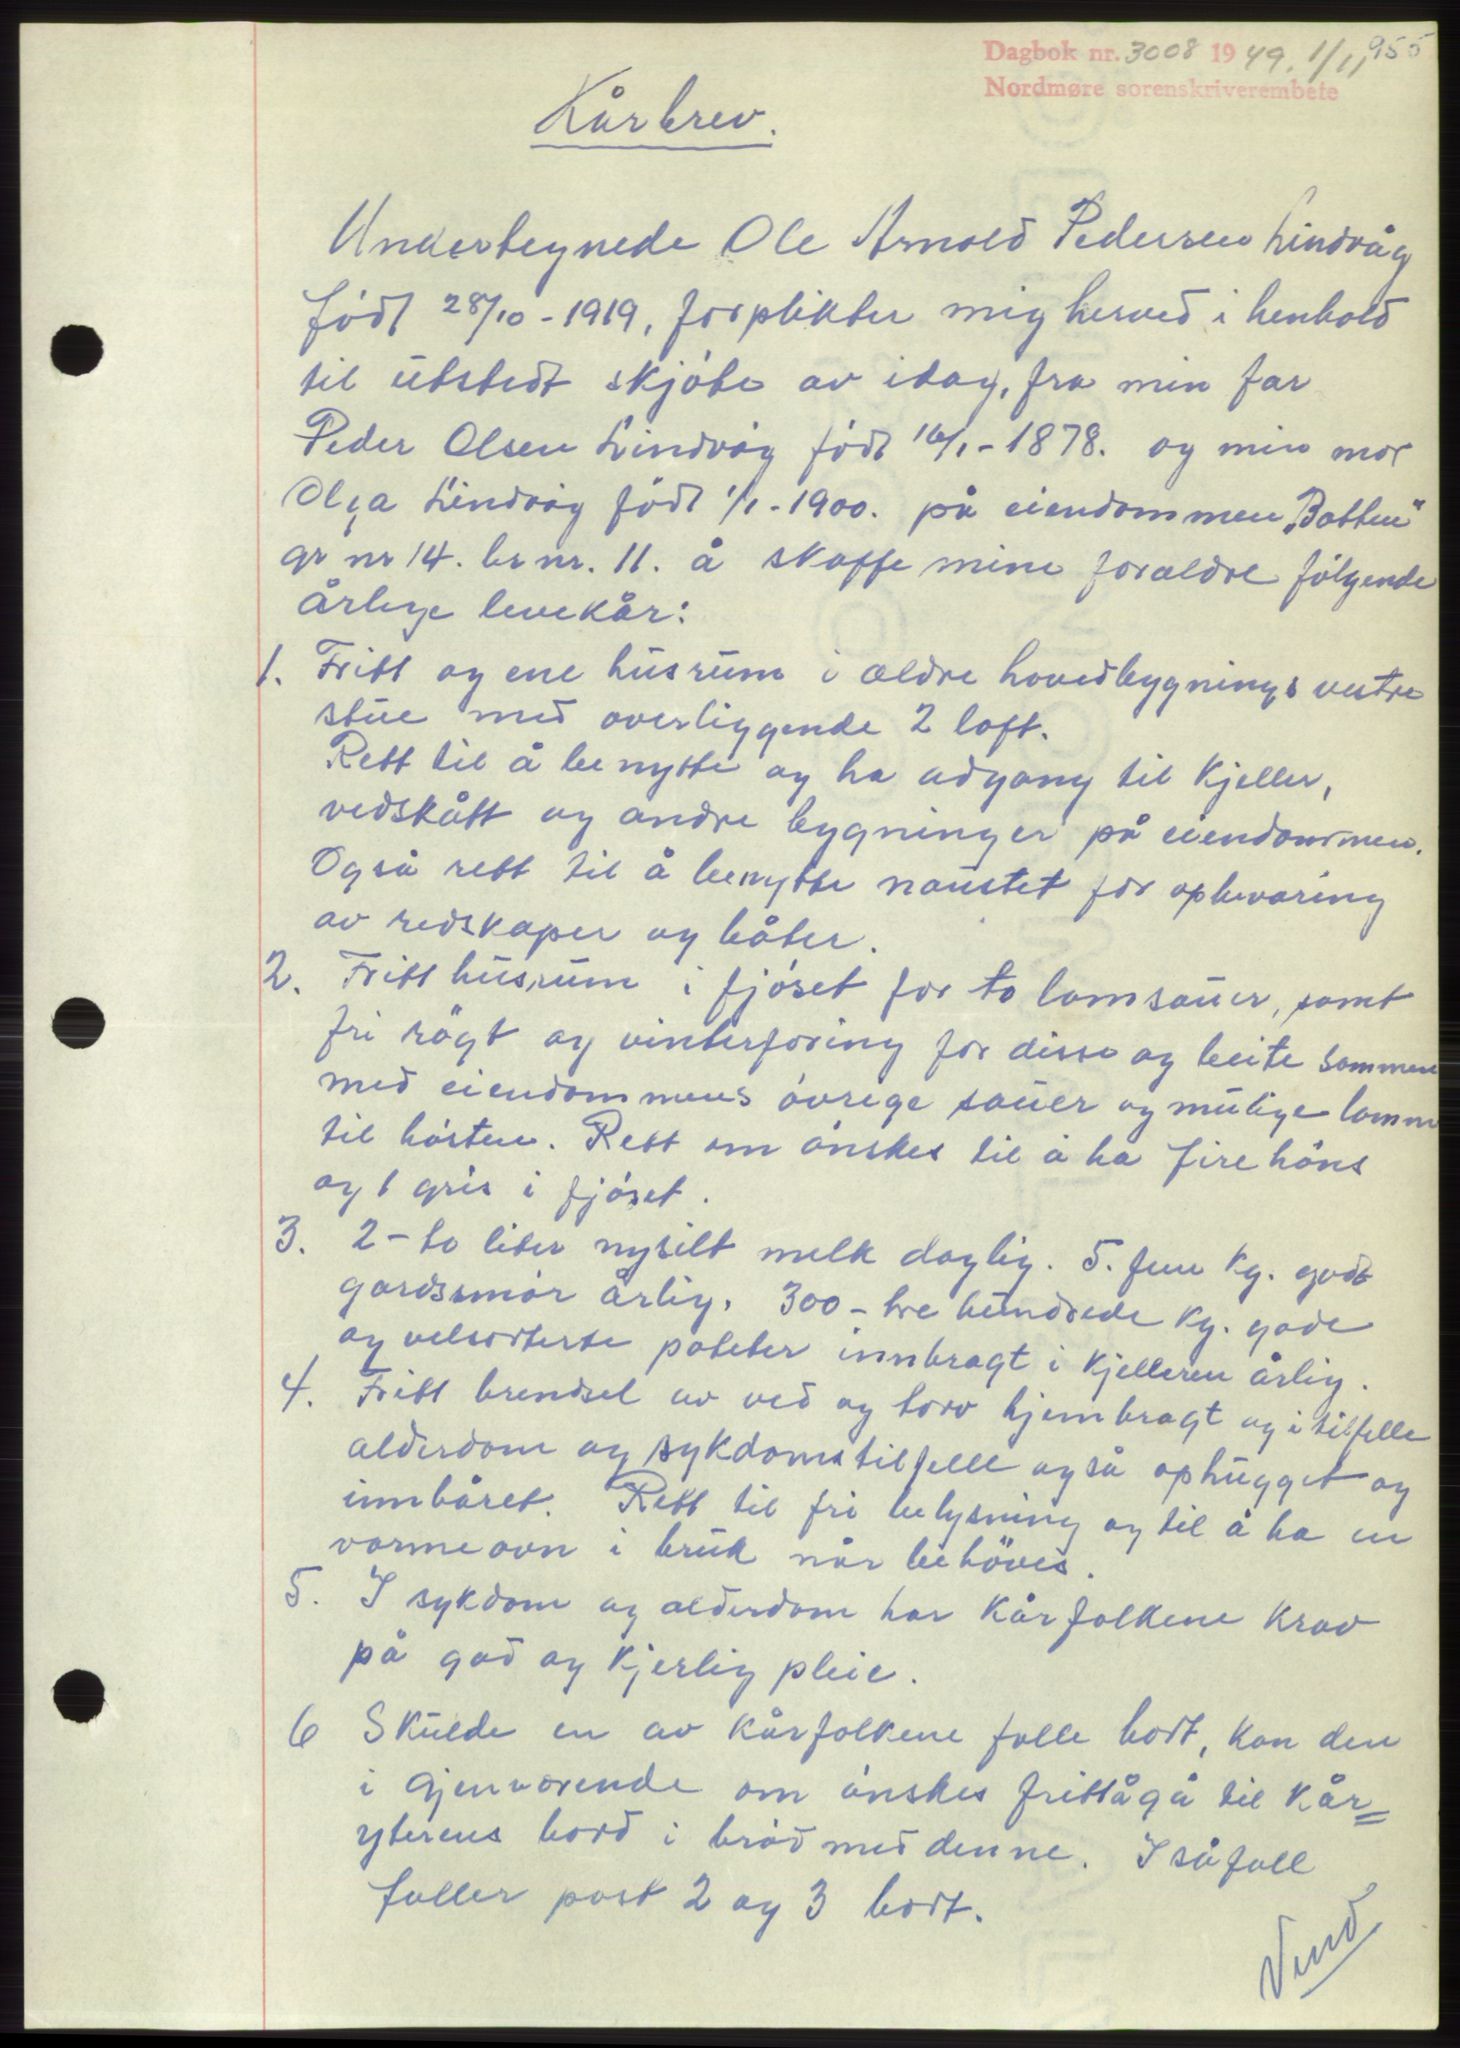 Dagbok nr. 3008 1949. 1/11 955
Nordmøre sorenskriverembete
Kårbrev.
Undertegnede Ole Arnold Pedersen Lindvåg
født 28/10-1919, forplikter mig herved i henhold
til utstedt skjøte av idag, fra min far
Peder Olsen Lindvåg født 16/1-1878. og min mor
Olga Lindvåg født 1/1-1900. på eiendommen „Botten"
gr nr 14. br nr. 11. å skaffe mine foreldre følgende
årlige levekår:
1. Fritt og ene husrum i ældre hovedbygnings vestre
stue med overliggende 2 loft.
Rett til å benytte og ha adgang til kjeller,
vedskått og andre bygninger på eiendommen.
Også rett til å benytte naustet for opbevaring
av redskaper og båter.
2. Fritt husrum i fjøset for to lamsauer, samt
fri røgt og vinterforing for disse og beite sammen
med eiendommens øvrige sauer og mulige lamm
til høsten. Rett om ønskes til å ha fire höns
og 1 gris i fjøset.
3. 2-to liter nysilt melk daglig. 5. fem kg. godt
gardssmør årlig. 300-tre hundrede kg. gode
og velsorterte poteter innbragt i kjelleren årlig.
4. Fritt brendsel av ved og torv hjembragt og i tilfelle
alderdom og sykdomstilfelle også ophugget og
innbåret. Rett til fri belysning og til å ha en
varmeovn i bruk når behöves.
5. I sykdom og alderdom har kårfolkene krav
på god og kjerlig pleie.
6 Skulde en av kårfolkene falle bort, kan den
i gjenværende om ønskes frittågå til kår=
yterens bord i brød med denne. I såfall
faller post 2 og 3 bort.
Vend